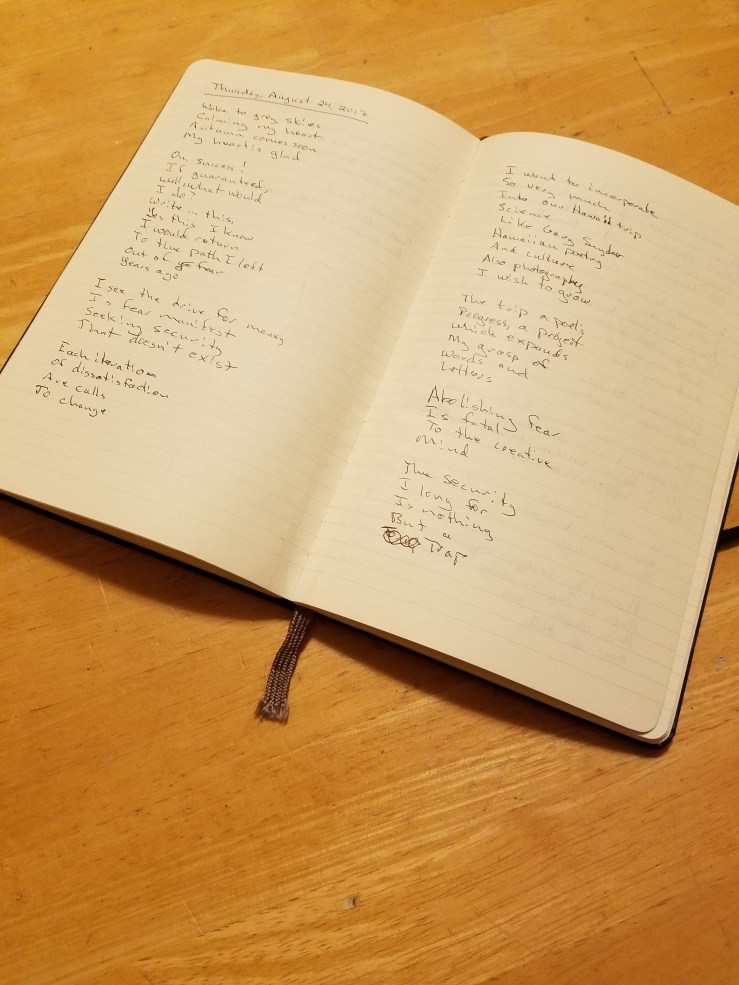 Thursday, August 24, 2017
Woke to grey skies
Calming my heart
Autumn comes soon
My heart is glad
Oh, success!
If guaranteed,
well, what would
I do?
Write... this,
Yes this I know
I would return
To the path I left
Out of fear
Years ago
I see the drive for money
Is fear manifest
Seeking security
That doesn't exist
Each iteration
Of dissatisfaction
Are calls
To change
I want to incorporate
So very much
Into our Hawaii trip
Science
Like Gary Snyder
Hawaiian poetry
And culture
Also photography
I wish to grow
The trip a poet's
Progress, a project
which expands
My grasp of
words and
Letters
Abolishing fear
Is fatal
To the creative
Mind
The security
I long for
Is nothing
But a
Trap